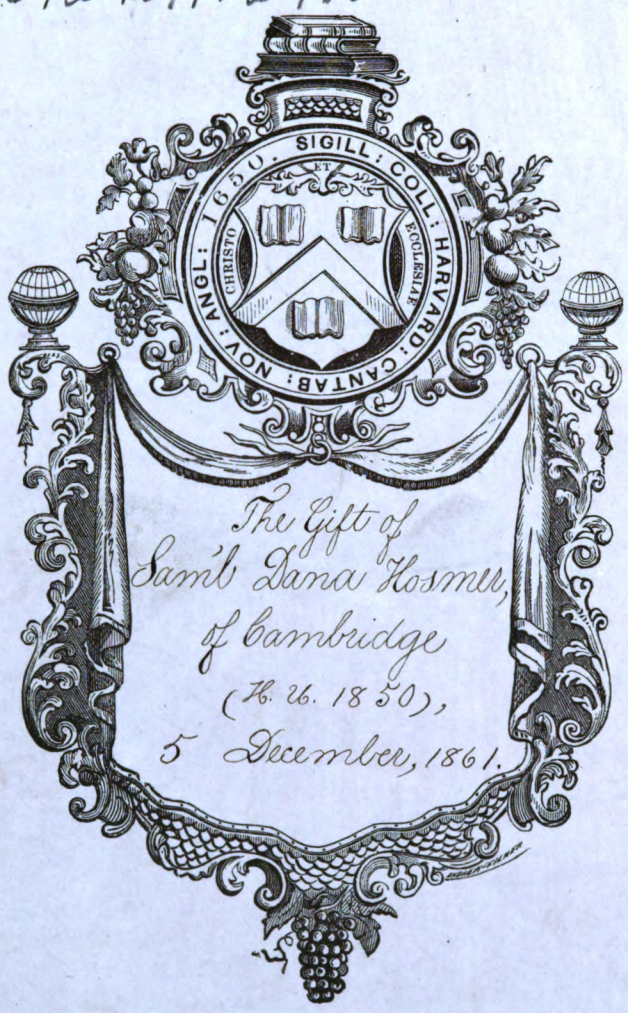 SIGILL: COLL: HARVARD: CANTAB: NOV: ANGL: 1650.
ET
CHRISTO
ECCLESIAE
The Gift of
Sam'l Dana Hosmer,
of Cambridge
(H. U. 1850),
5 December, 1861.